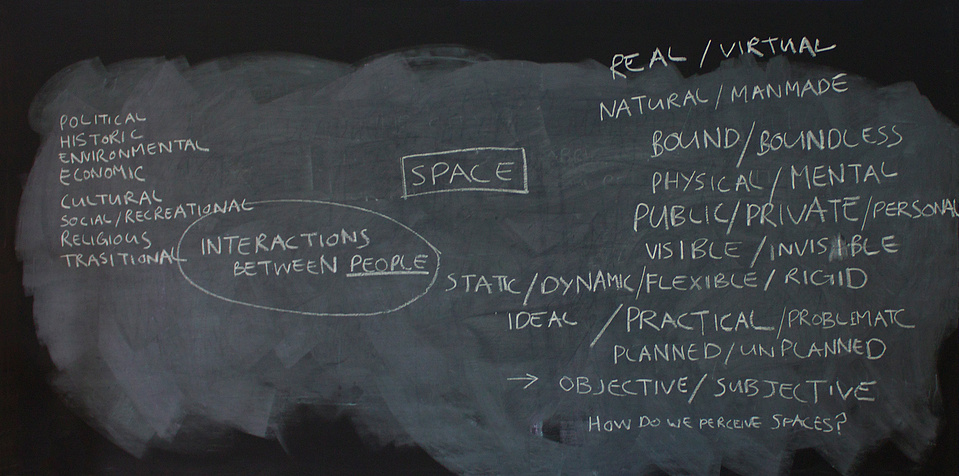 POLITICAL
HISTORIC
ENVIRONMENTAL
ECONOMIC
CULTURAL
SOCIAL/RECREATIONAL
RELIGIOUS
TRASITIONAL
INTERACTIONS
BETWEEN PEOPLE
SPACE
REAL / VIRTUAL
NATURAL / MANMADE
BOUND / BOUNDLESS
PHYSICAL / MENTAL
PUBLIC/PRIVATE/PERSONAL
VISIBLE / INVISIBLE
STATIC/DYNAMIC/FLEXIBLE/RIGID
IDEAL / PRACTICAL/PROBLEMATC
PLANNED/UNPLANNED
→ OBJECTIVE/SUBJECTIVE
HOW DO WE PERCEIVE SPACES?